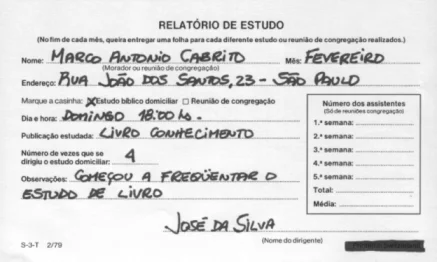 RELATÓRIO DE ESTUDO
(No fim de cada mês, queira entregar uma folha para cada diferente estudo ou reunião de congregação realizados.)
Nome: MARCO ANTONIO CABRITO Mês: FEVEREIRO
(Morador ou reunião de congregação)
Endereço: RUA JOÃO DOS SANTOS, 23 - SÃO PAULO
Marque a casinha: X Estudo bíblico domiciliar □ Reunião de congregação
Dia e hora: DOMINGO 18:00 hs.
Publicação estudada: LIVRO CONHECIMENTO
Número de vezes que se
dirigiu o estudo domiciliar: 4
Observações: COMEÇOU A FREQÜENTAR O
ESTUDO DE LIVRO
Número dos assistentes
(Só de reuniões congregação)
1.ª semana:
2.ª semana:
3.ª semana:
4.ª semana:
5.ª semana:
Total:
Média:
JOSÉ DA SILVA
(Nome do dirigente)
S-3-T 2/79